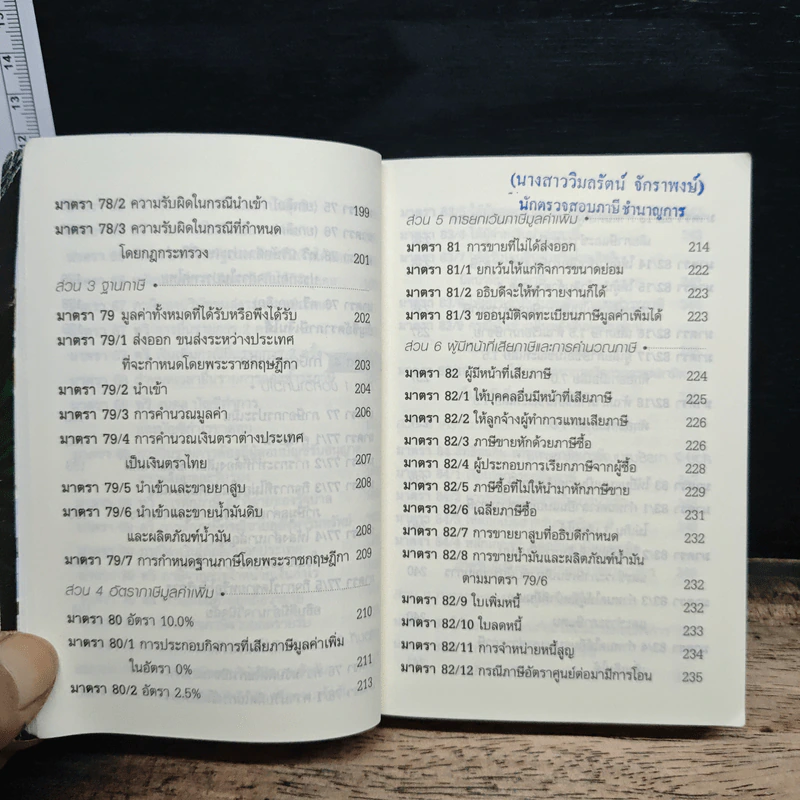 14
13
12
มาตรา 78/2 ความรับผิดในกรณีนำเข้า 199
มาตรา 78/3 ความรับผิดในกรณีที่กำหนด
โดยกฎกระทรวง 201
ส่วน 3 ฐานภาษี •
มาตรา 79 มูลค่าทั้งหมดที่ได้รับหรือพึงได้รับ 202
มาตรา 79/1 ส่งออก ขนส่งระหว่างประเทศ
ที่จะกำหนดโดยพระราชกฤษฎีกา 203
มาตรา 79/2 นำเข้า 204
มาตรา 79/3 การคำนวณมูลค่า 206
มาตรา 79/4 การคำนวณเงินตราต่างประเทศ
เป็นเงินตราไทย 207
มาตรา 79/5 นำเข้าและขายยาสูบ 208
มาตรา 79/6 นำเข้าและขายน้ำมันดิบ
และผลิตภัณฑ์น้ำมัน 208
มาตรา 79/7 การกำหนดฐานภาษีโดยพระราชกฤษฎีกา 209
ส่วน 4 อัตราภาษีมูลค่าเพิ่ม •
มาตรา 80 อัตรา 10.0% 210
มาตรา 80/1 การประกอบกิจการที่เสียภาษีมูลค่าเพิ่ม
ในอัตรา 0% 211
มาตรา 80/2 อัตรา 2.5% 213
(นางสาววิมลรัตน์ จักราพงษ์)
นักตรวจสอบภาษีชำนาญการ
ส่วน 5 การยกเว้นภาษีมูลค่าเพิ่ม •
มาตรา 81 การขายที่ไม่ได้ส่งออก 214
มาตรา 81/1 ยกเว้นให้แก่กิจการขนาดย่อม 222
มาตรา 81/2 อธิบดีจะให้ทำรายงานก็ได้ 223
มาตรา 81/3 ขออนุมัติจดทะเบียนภาษีมูลค่าเพิ่มได้ 223
ส่วน 6 ผู้มีหน้าที่เสียภาษีและการคำนวณภาษี •
มาตรา 82 ผู้มีหน้าที่เสียภาษี 224
มาตรา 82/1 ให้บุคคลอื่นมีหน้าที่เสียภาษี 225
มาตรา 82/2 ให้ลูกจ้างผู้ทำการแทนเสียภาษี 226
มาตรา 82/3 ภาษีขายหักด้วยภาษีซื้อ 226
มาตรา 82/4 ผู้ประกอบการเรียกภาษีจากผู้ซื้อ 228
มาตรา 82/5 ภาษีซื้อที่ไม่ให้นำมาหักภาษีขาย 229
มาตรา 82/6 เฉลี่ยภาษีซื้อ 231
มาตรา 82/7 การขายยาสูบที่อธิบดีกำหนด 232
มาตรา 82/8 การขายน้ำมันและผลิตภัณฑ์น้ำมัน
ตามมาตรา 79/6 232
มาตรา 82/9 ใบเพิ่มหนี้ 232
มาตรา 82/10 ใบลดหนี้ 233
มาตรา 82/11 การจำหน่ายหนี้สูญ 234
มาตรา 82/12 กรณีภาษีอัตราศูนย์ต่อมามีการโอน 235